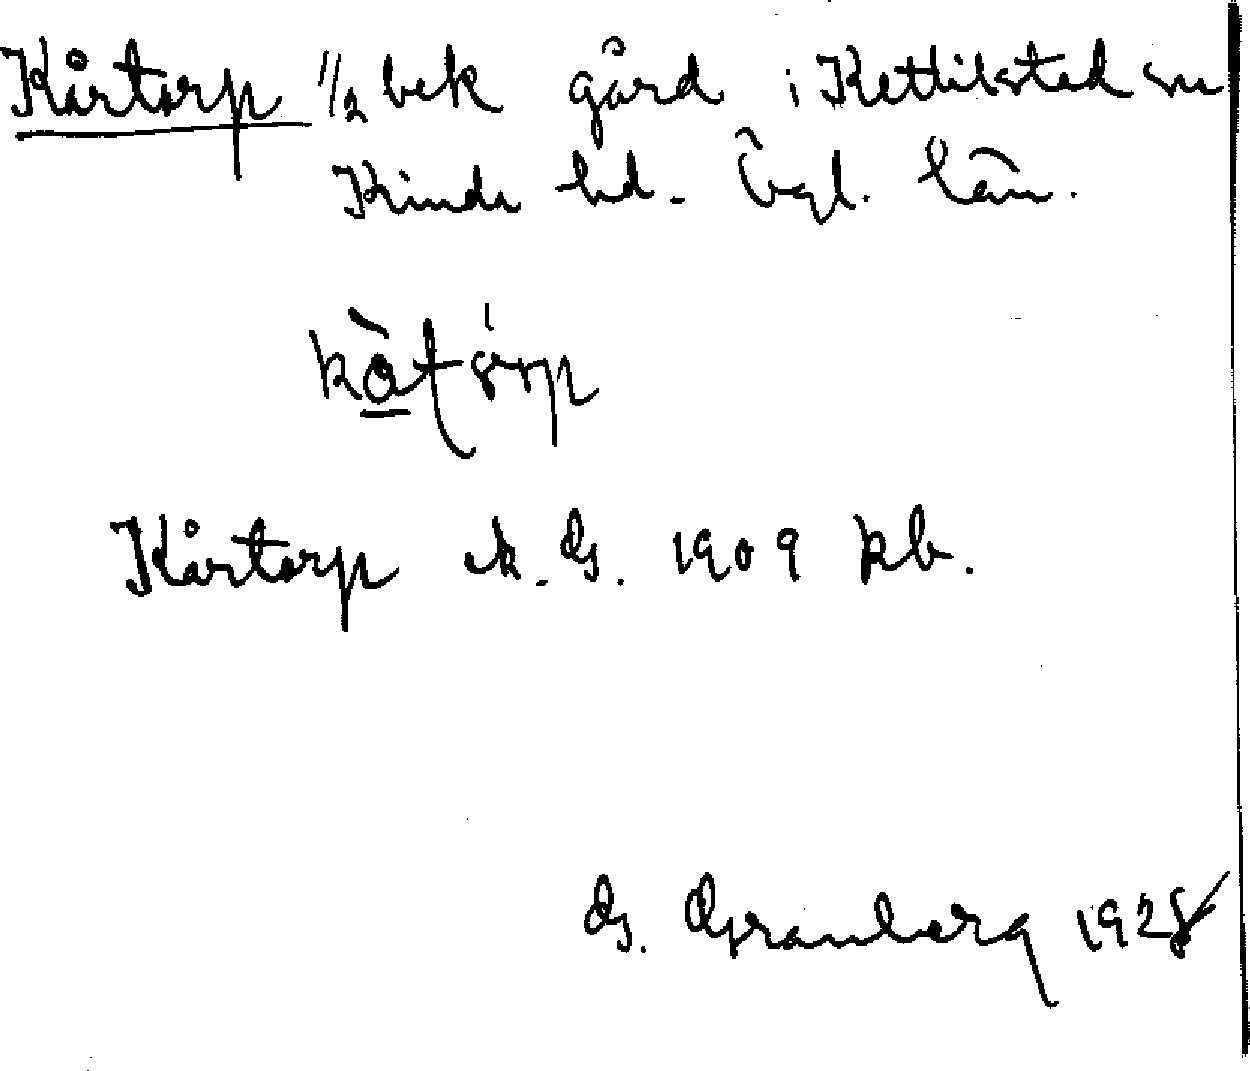 Kårtorp 1/2 bek gård i Kettilstad sn
Kinda hd. Ögl. län.
Kårtorp ek. G. 1909 kb.
G. Granberg 1928